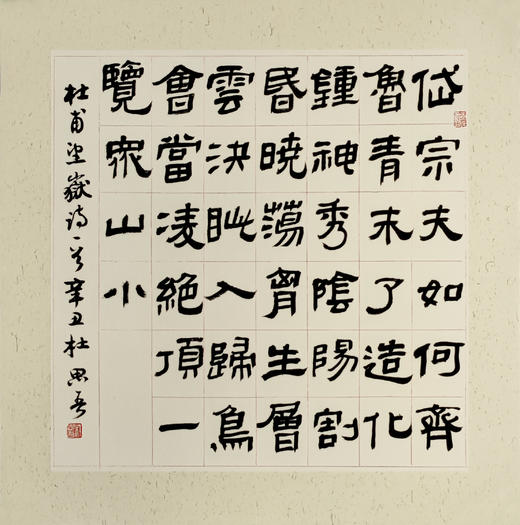 岱宗夫如何齊
魯青未了造化
鍾神秀陰陽割
昏曉蕩胷生層
雲決眦入歸鳥
會當凌絕頂一
覽衆山小
杜甫望嶽詩一首辛丑杜思吾